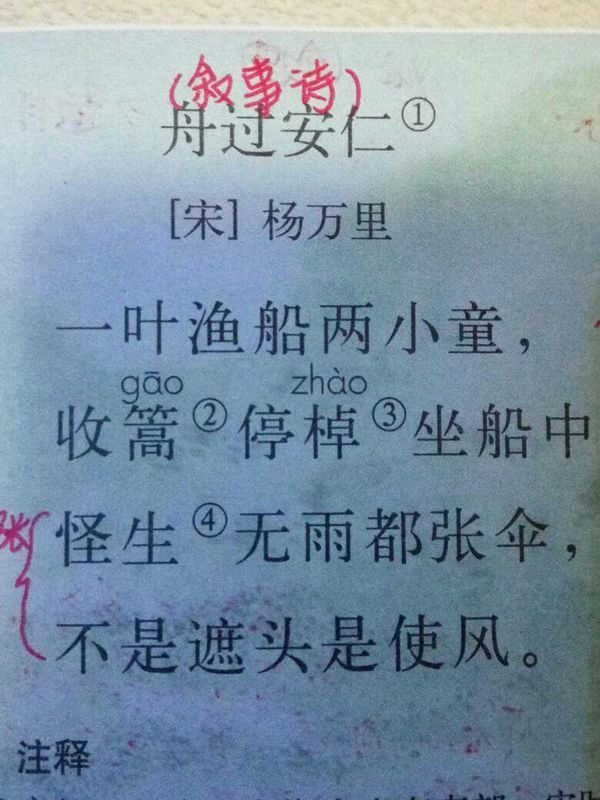 (叙事诗)
舟过安仁①
[宋] 杨万里
一叶渔船两小童，
gāo zhào
收篙②停棹③坐船中
怪生④无雨都张伞，
不是遮头是使风。
注释